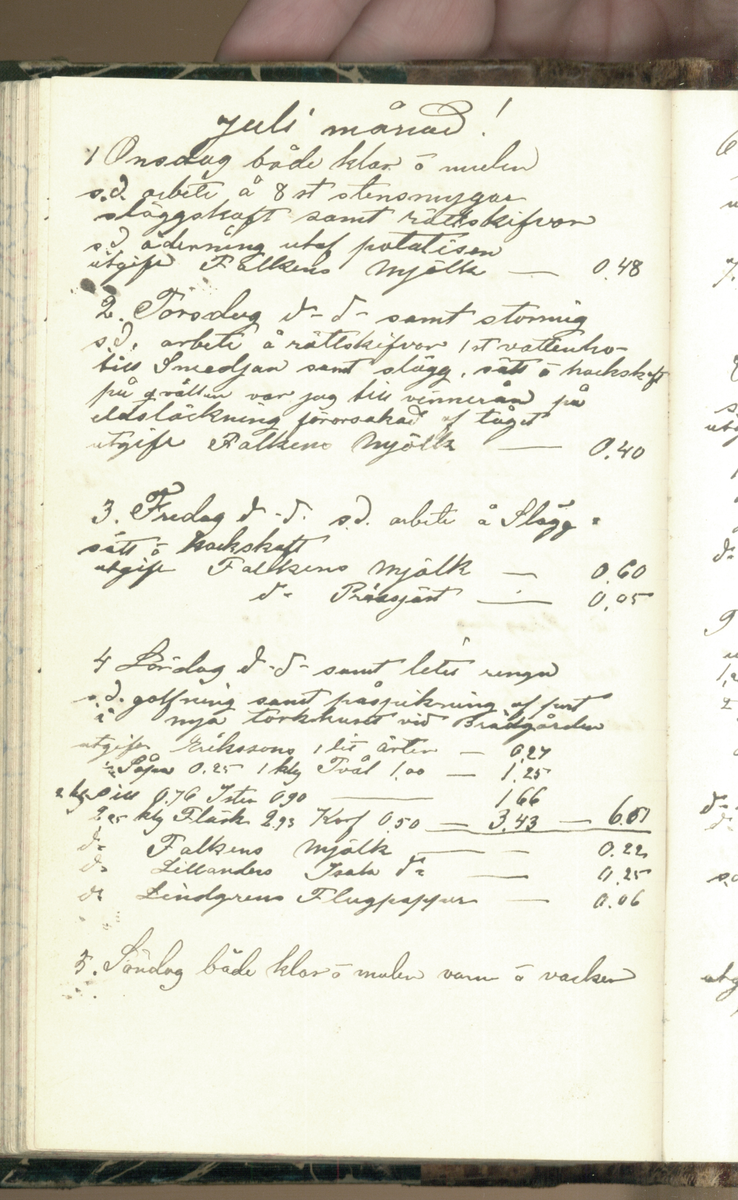 Juli månad!
1 Onsdag både klar ō mulen
s.d. arbete å 8 st stensmygar
släggskaft samt rättskifvor
s.d. åderning utaf potatisen
utgift Falkens Mjölk — 0,48
2. Torsdag d-d- samt stormig
s.d. arbete å rättskifvor 1 st vattenho-
till Smedjan samt slägg, sätt ō hackskaft
på qvällen var jag till på
eldsläckning förorsakad af tåget
utgift Falkens Mjölk — 0,40
3. Fredag d-d. s.d. arbete å Slägg=
sätt ō hackskaft
utgift Falkens Mjölk — 0,60
d= Prässjäst — 0,05
4 Lördag d-d- samt letit rengn
s.d. golfning samt påspikning af
i nya torkhuset vid Brädgården
utgifter Erikssons 1 lit ärter — 0,27
½ Såpa 0.25 1 kg Tvål 1,00 — 1,25
2 kg Sill 0,76 Ister 0,90 — 1,66
2,25 kg Fläsk 2,93 Korf 0,50 — 3,43 — 6.61
d= Falkens Mjölk — 0.22
d= Lillanders Isak d= — 0.25
d= Lindgrens Flugpapper — 0,06
5. Söndag både klar ō mulen varm ō vacker